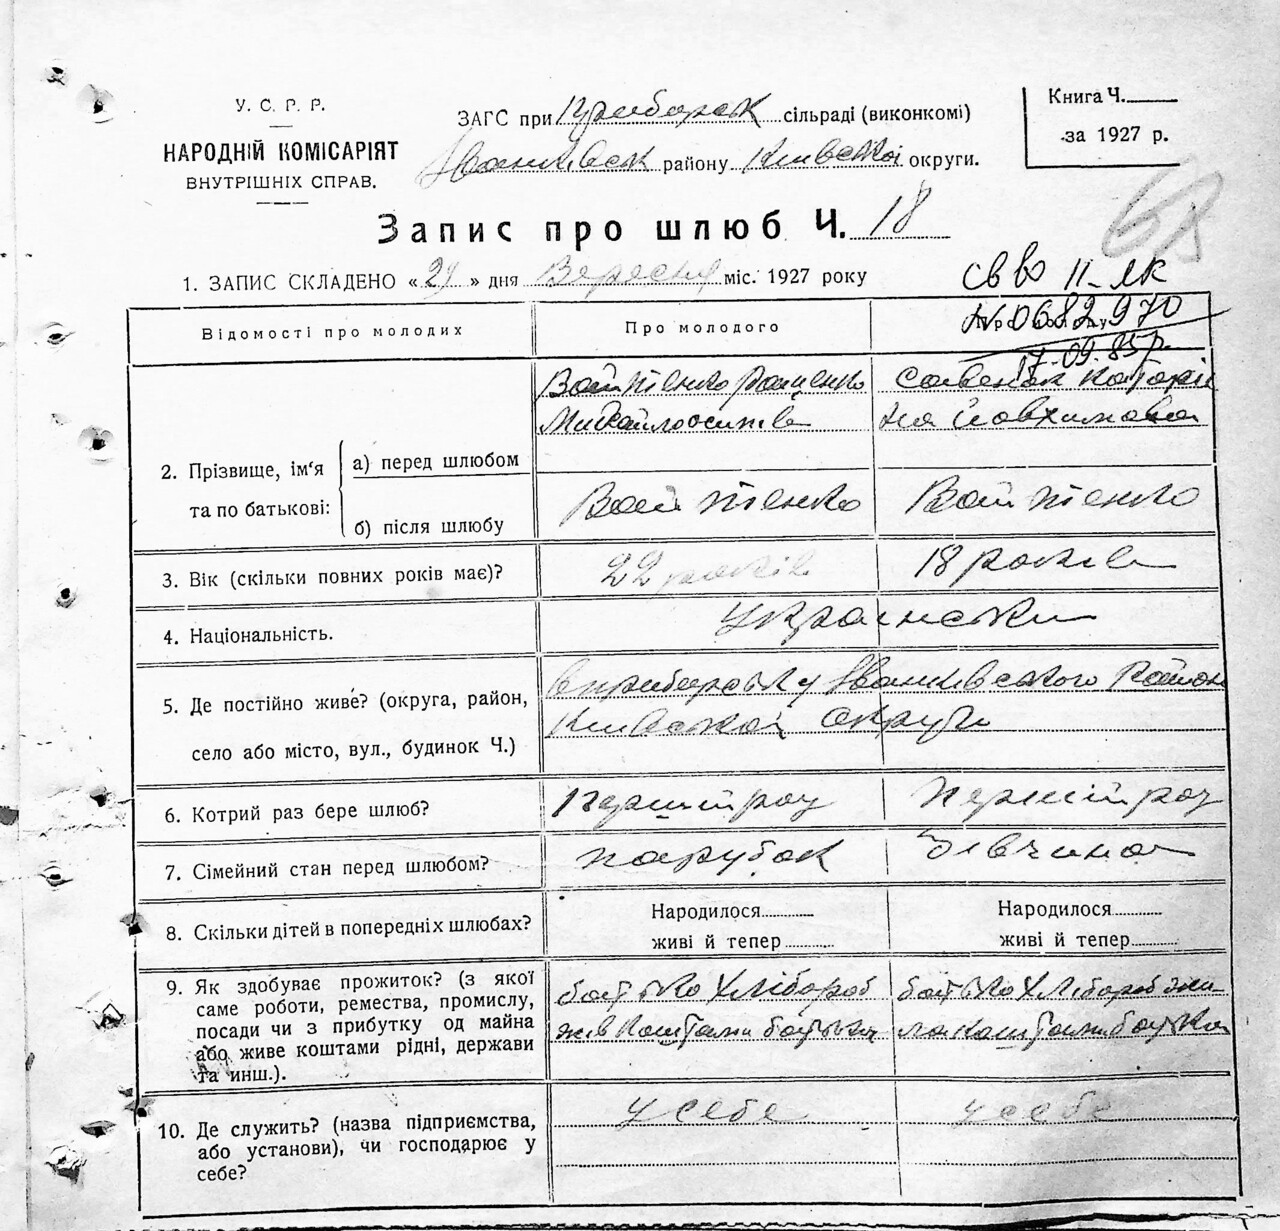 У. С. Р. Р.
НАРОДНІЙ КОМІСАРІЯТ
ВНУТРІШНІХ СПРАВ.
ЗАГС при Приборськ сільраді (виконкомі)
Іванківськ району Київської округи.
Книга Ч.
за 1927 р.
68
Запис про шлюб Ч. 18
1. ЗАПИС СКЛАДЕНО « 29 » дня Вересня міс. 1927 року
св во II-ЛК
№ 0682970
17-09-85р.
Відомості про молодих
Про молодого
2. Прізвище, ім'я та по батькові:
а) перед шлюбом
Войтенко
Михайло
Катори
на Йовхимовна
б) після шлюбу
Войтенко
Войтенко
3. Вік (скільки повних років має)?
22 років
18 років
4. Національність.
Українськи
5. Де постійно живе? (округа, район,
село або місто, вул., будинок Ч.)
в Приборську Іванківського Району
Київської округи
6. Котрий раз бере шлюб?
Перший раз
Перший раз
7. Сімейний стан перед шлюбом?
парубок
дівчина
8. Скільки дітей в попередніх шлюбах?
Народилося
живі й тепер
Народилося
живі й тепер
9. Як здобуває прожиток? (з якої
саме роботи, ремества, промислу,
посади чи з прибутку од майна
або живе коштами рідні, держави
та инш.).
батько Хлібороб
жив Коштами батька
батько Хлібороб жи-
ла коштами батька
10. Де служить? (назва підприємства,
або установи), чи господарює у
себе?
у себе
у себе